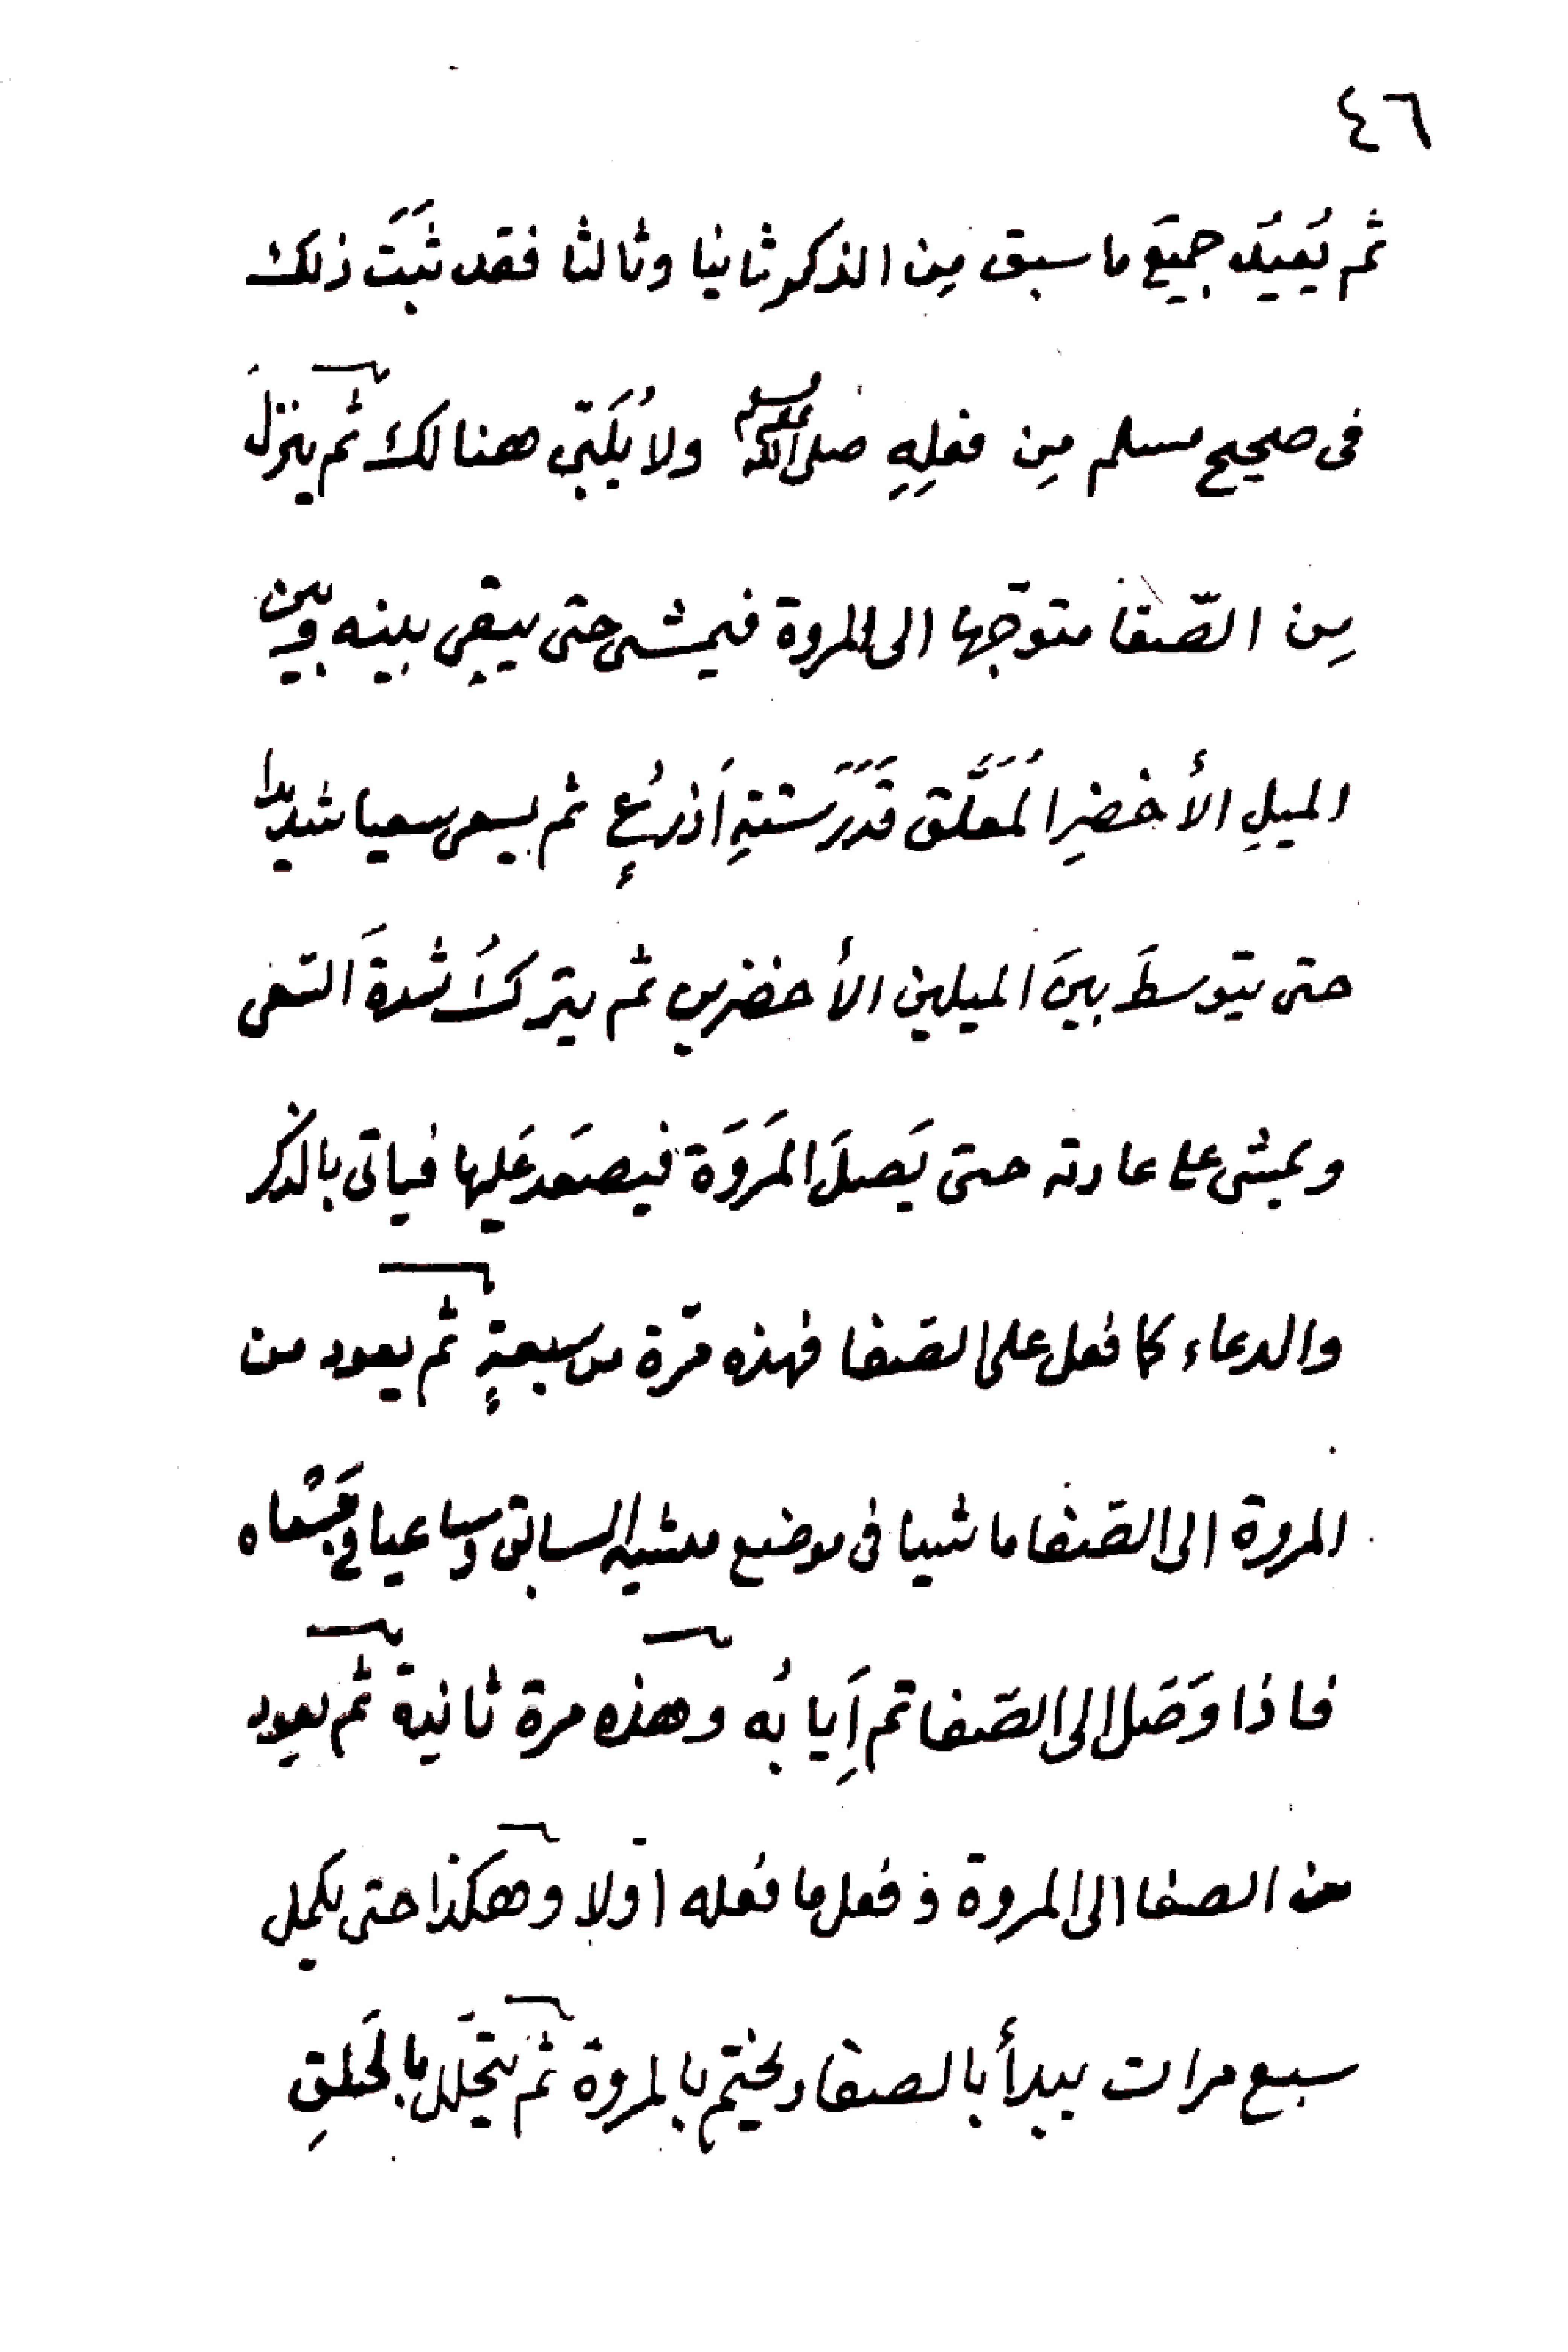 ٤٦
ثم يُعيدُ جميعَ ما سبق مِن الذكر ثانيا وثالثا فقد ثَبَتَ ذلك
فى صحيح مسلم مِن فعلِهِ صلى الله عليه وسلم ولا يُلَبّى هنالك ثم ينزل
مِن الصّفا متوجّها الى المروة فيمشى حتى يبقى بينه وبين
الميلِ الأخضرِ المُعَلَّق قَدَرَ ستةِ أَذرُعٍ ثم يسعى سعيا شديدا
حتى يتوسطَ بينَ الميلين الأخضرين ثم يتركُ شدةَ السّعى
ويمشى على عادته حتى يَصلَ المَروَة فيصعَد عَليها فياتى بالذكر
والدعاء كما فعل على الصّفا فهذه مرّة من سبعةٍ ثم يعود من
المروة الى الصّفا ماشيا فى موضع مشيه السابق وساعيا فى مَسْعاه
فاذا وَصَل الى الصّفا تم اِيابُه وهذه مرة ثانية ثم يعود
من الصفا الى المروة وفعل ما فعله اوّلا وهكذا حتى يكمل
سبع مرات يبدأ بالصفا ويختم بالمروة ثم يتحَلّل بالحَلقِ